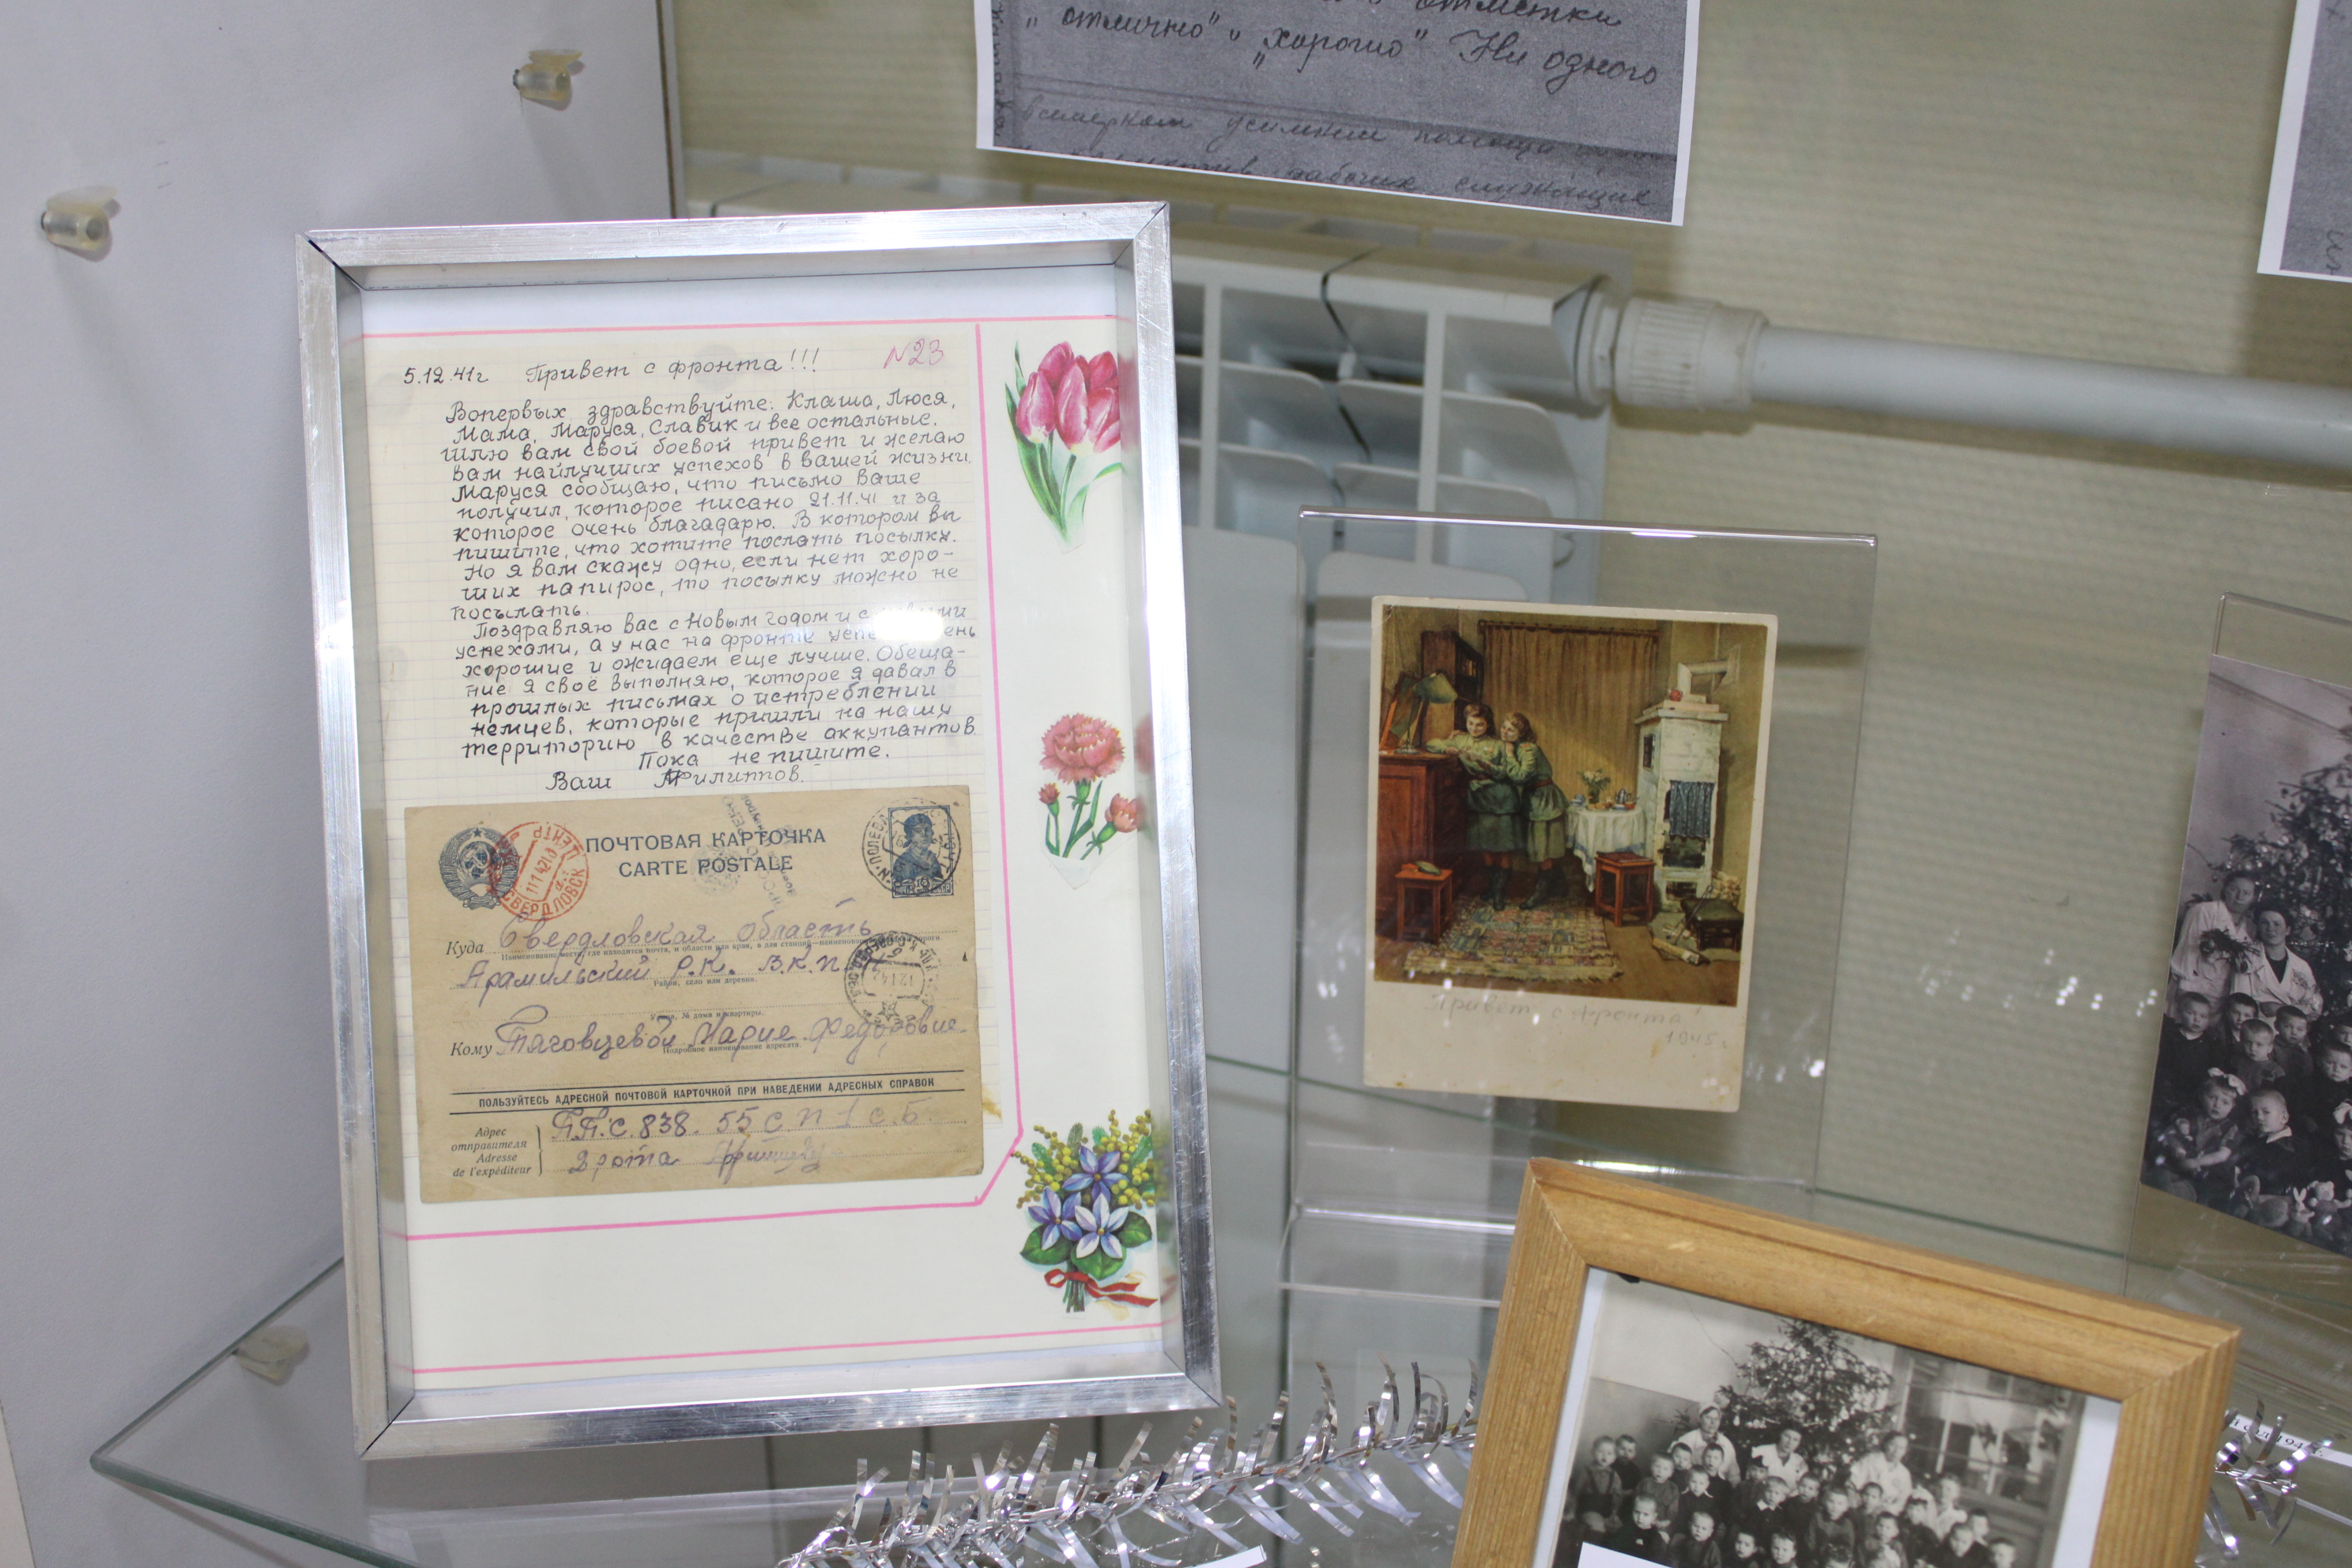 отметки
„отлично" и „хорошо" Ни одного
усилении помощи
рабочих служащих
5.12.41г Привет с фронта!!! N23
Вопервых здравствуйте: Клаша, Люся,
Мама, Маруся, Славик и все остальные.
Шлю вам свой боевой привет и желаю
вам найлучших успехов в вашей жизни.
Маруся сообщаю, что письмо ваше
получил, которое писано 21.11.41 и за
которое очень благадарю. В котором вы
пишите, что хотите послать посылку.
Но я вам скажу одно, если нет хоро-
ших папирос, то посылку можно не
посылать.
Поздравляю вас с Новым годом и с
успехами, а у нас на фронте
хорошие и ожидаем еще лучше. Обеща-
ние я своё выполняю, которое я давал в
прошлых письмах о истреблении
немцев, которые пришли на нашу
территорию в качестве аккупантов
Пока не пишите.
Ваш Филиппов.
ПОЧТОВАЯ КАРТОЧКА
CARTE POSTALE
ЦЕНТР
11 1 42
СВЕРДЛОВСК
Куда Свердловская область
Арамильский Р.К. В.К.П
Район, село или деревня.
Улица, № дома и квартиры.
Кому Тяговцевой Марие Федоровне.
Подробное наименование адресата.
ПОЛЬЗУЙТЕСЬ АДРЕСНОЙ ПОЧТОВОЙ КАРТОЧКОЙ ПРИ НАВЕДЕНИИ АДРЕСНЫХ СПРАВОК
Адрес
отправителя
Adresse
de l'expéditeur
П.П.С. 838. 55 с п 1 с.Б.
2 рота
Привет с фронта!
1945г.